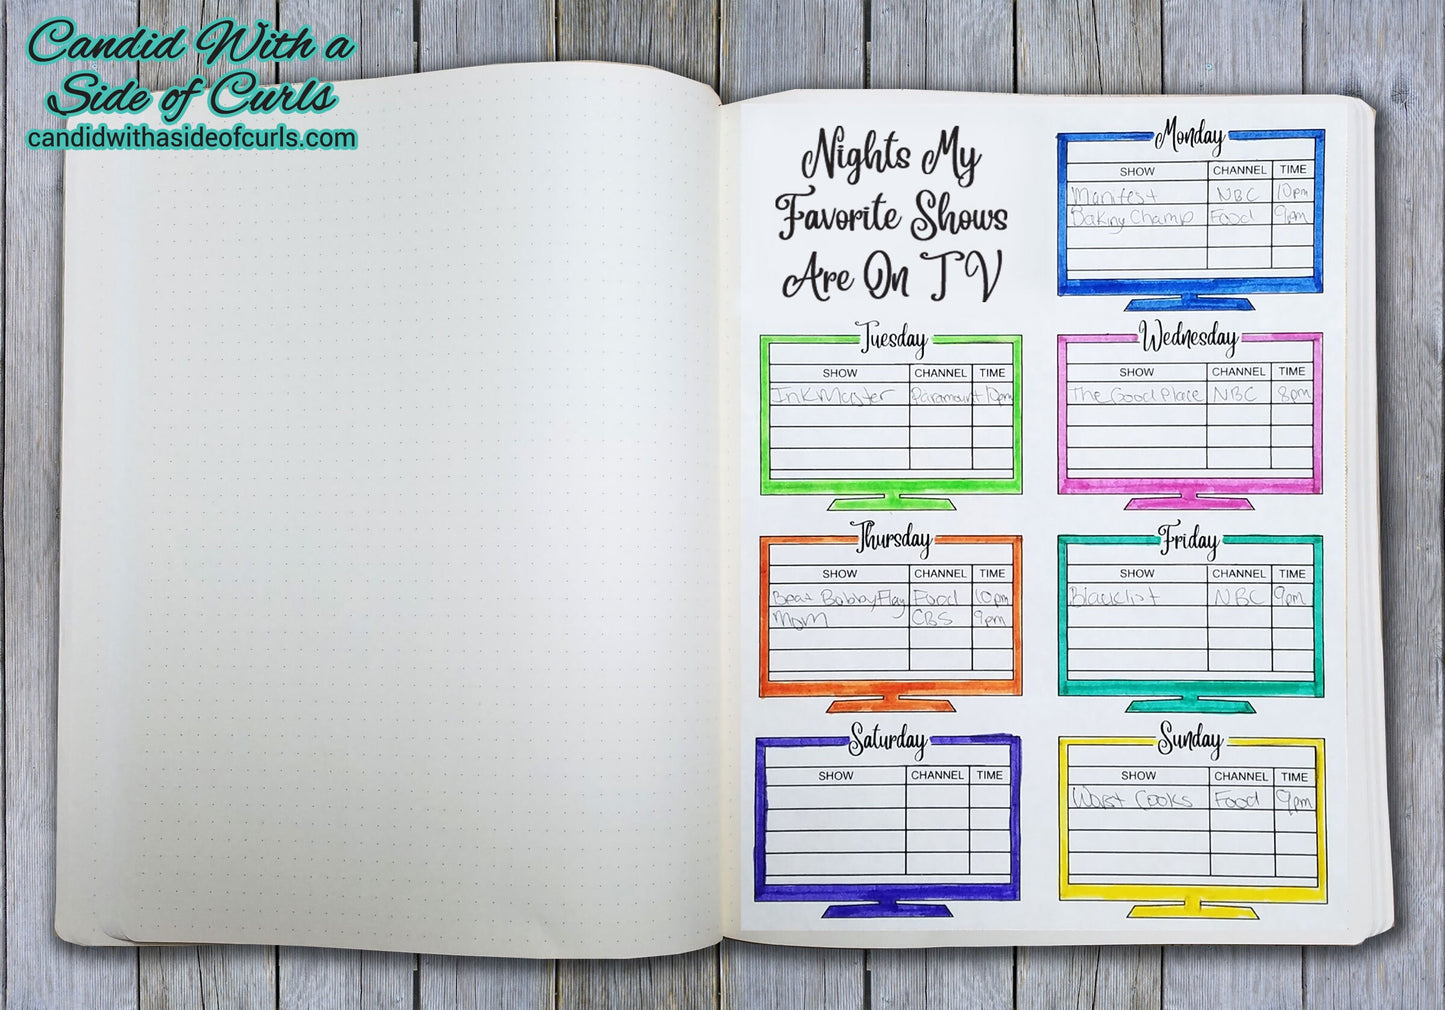 Candid With a
Side of Curls
candidwithasideofcurls.com
Nights My
Favorite Shows
Are On TV
Monday
SHOW CHANNEL TIME
Manifest NBC 10pm
Baking Champ Food 9pm
Tuesday
SHOW CHANNEL TIME
Ink Master Paramount 10pm
Wednesday
SHOW CHANNEL TIME
The Good Place NBC 8pm
Thursday
SHOW CHANNEL TIME
Beat Bobby Flay Food 10pm
Mom CBS 9pm
Friday
SHOW CHANNEL TIME
Blacklist NBC 9pm
Saturday
SHOW CHANNEL TIME
Sunday
SHOW CHANNEL TIME
Worst Cooks Food 9pm